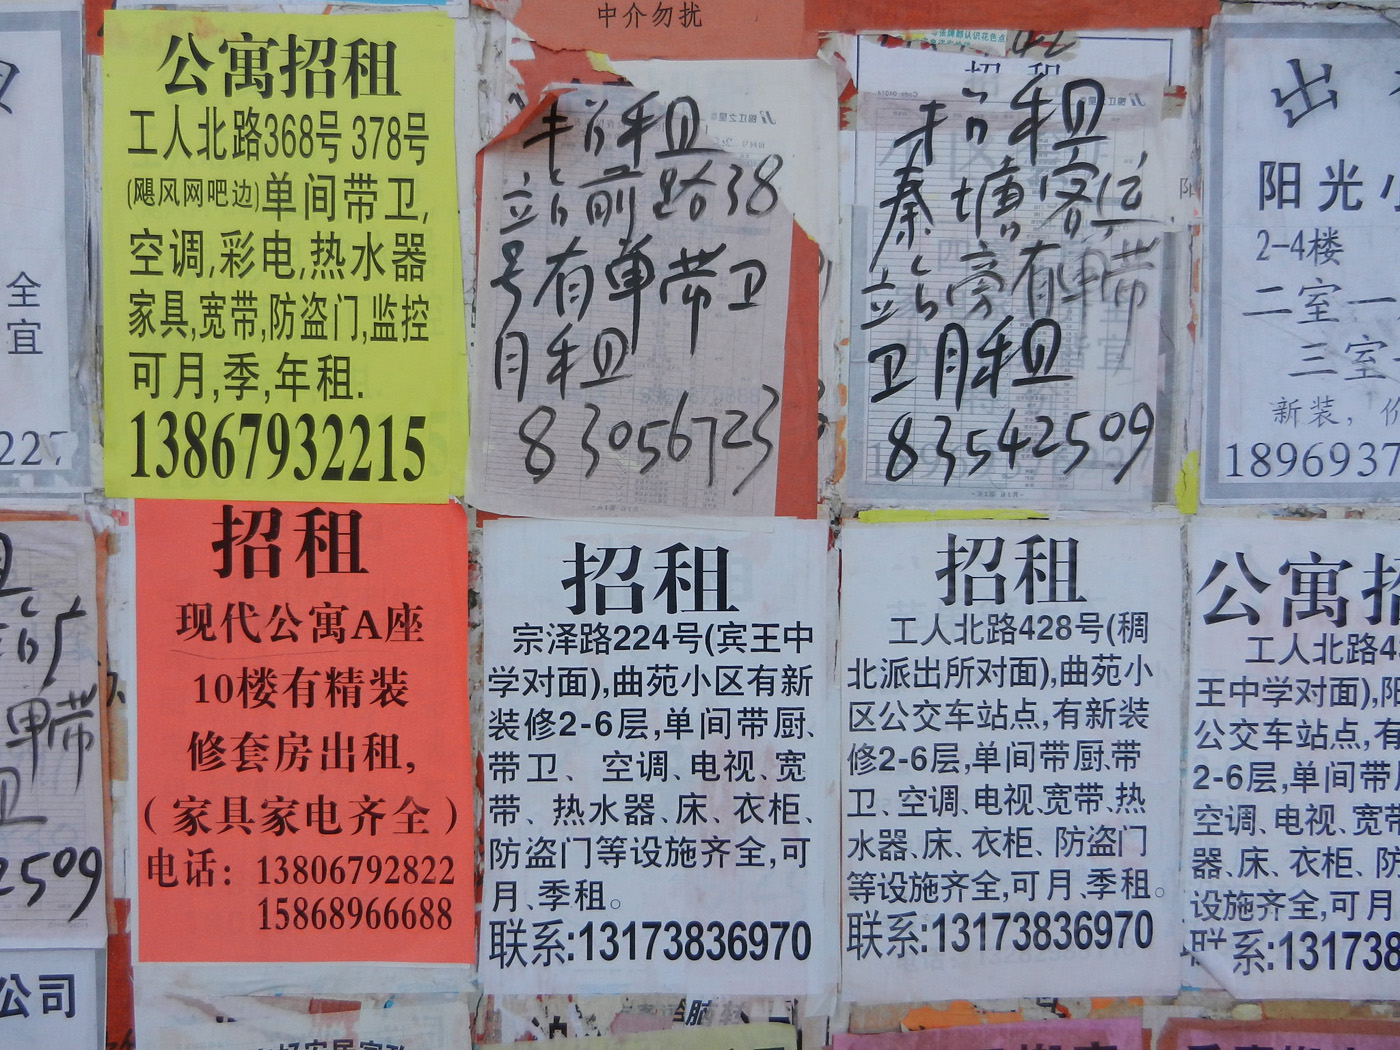 中介勿扰
全
宜
公寓招租
工人北路368号 378号
(飓风网吧边)单间带卫,
空调,彩电,热水器
家具,宽带,防盗门,监控
可月,季,年租.
13867932215
招租
站前路38
号有单带卫
月租
83056723
招租
秦塘客运
站旁有单带
卫月租
83542509
出
阳光小
2-4楼
二室一
三室
新装,价
1896937
带
2509
公司
招租
现代公寓A座
10楼有精装
修套房出租,
(家具家电齐全)
电话: 13806792822
15868966688
招租
宗泽路224号(宾王中
学对面),曲苑小区有新
装修2-6层,单间带厨、
带卫、空调、电视、宽
带、热水器、床、衣柜、
防盗门等设施齐全,可
月、季租。
联系:13173836970
招租
工人北路428号(稠
北派出所对面),曲苑小
区公交车站点,有新装
修2-6层,单间带厨、带
卫、空调、电视、宽带、热
水器、床、衣柜、防盗门
等设施齐全,可月、季租。
联系:13173836970
公寓招
工人北路4
王中学对面),阳
公交车站点,有
2-6层,单间带厨
空调、电视、宽带
器、床、衣柜、防
设施齐全,可月
联系:131738